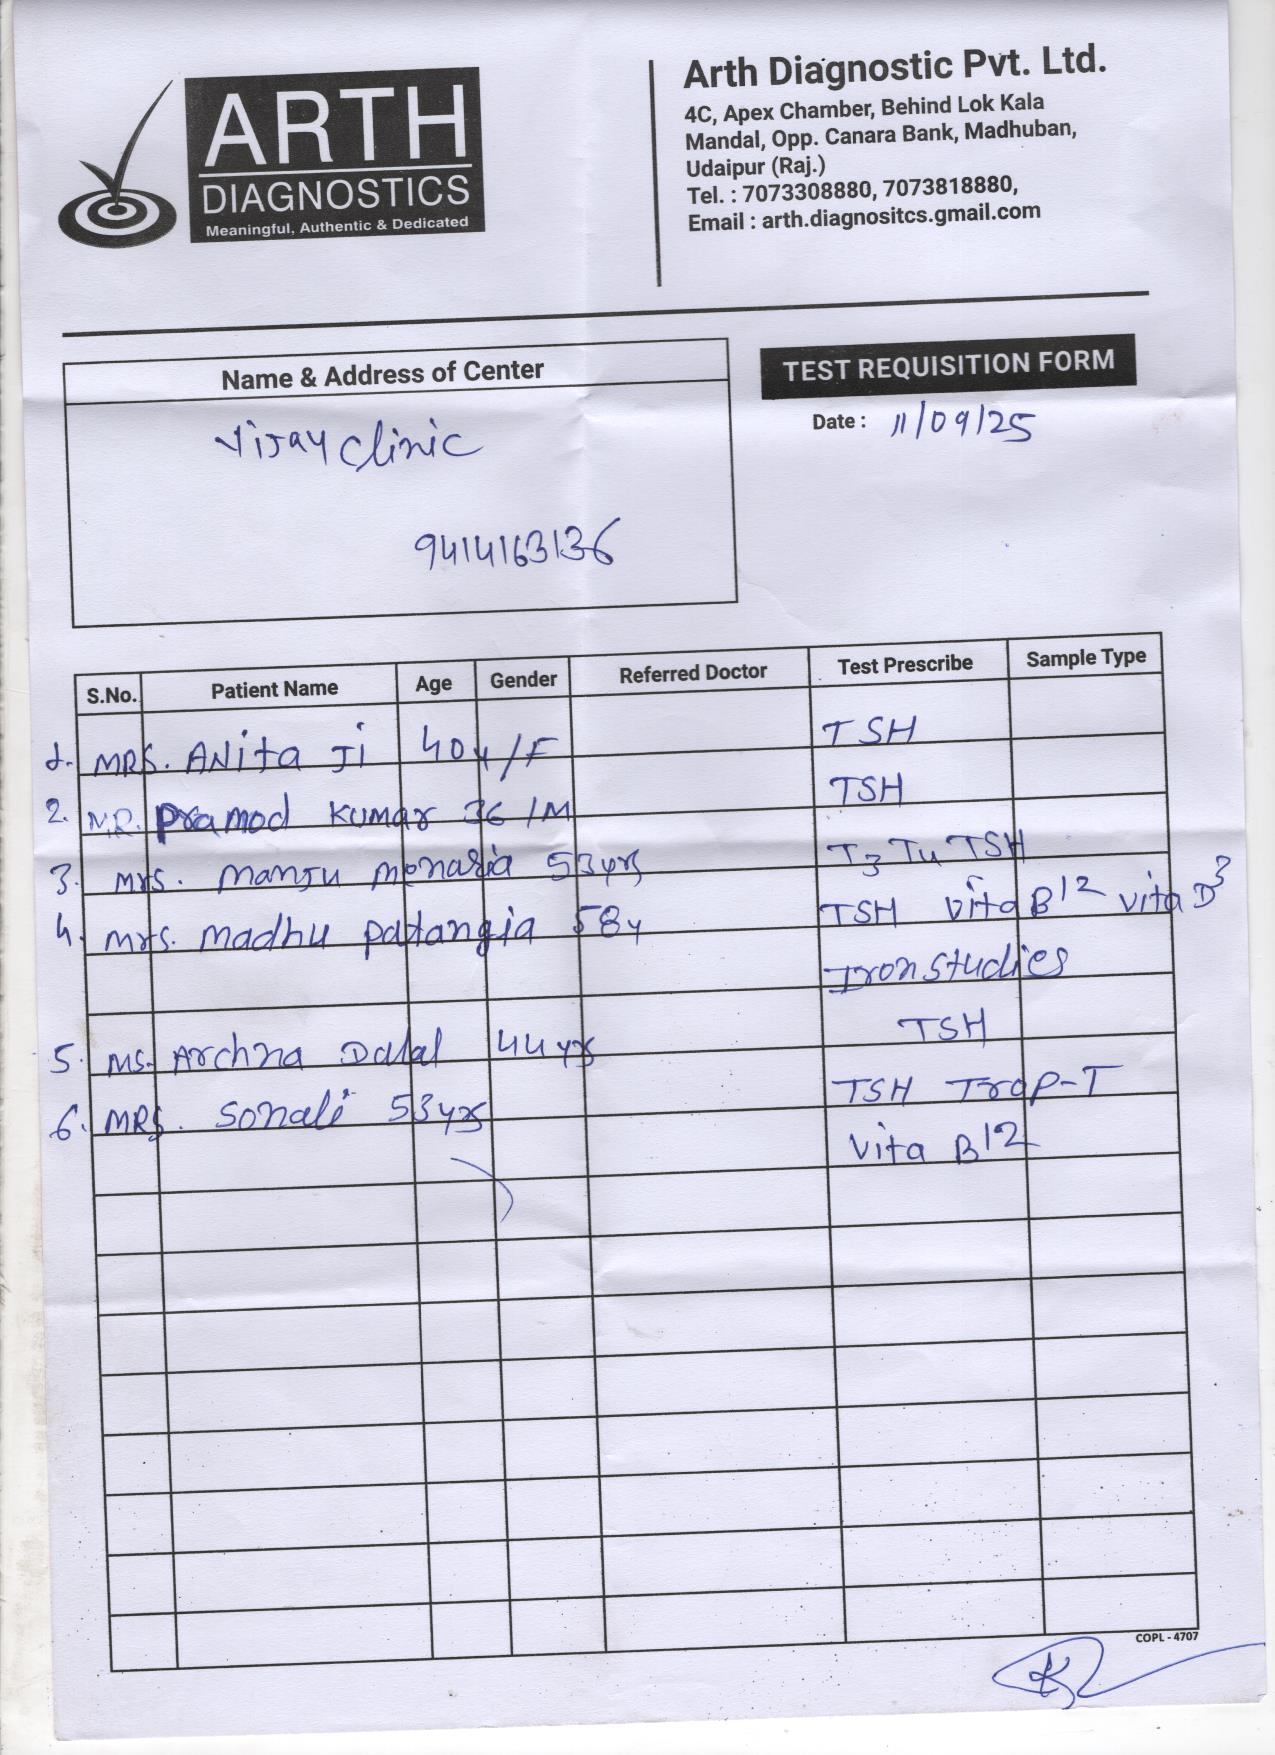 ARTH
DIAGNOSTICS
Meaningful, Authentic & Dedicated
Arth Diagnostic Pvt. Ltd.
4C, Apex Chamber, Behind Lok Kala
Mandal, Opp. Canara Bank, Madhuban,
Udaipur (Raj.)
Tel. : 7073308880, 7073818880,
Email : arth.diagnositcs.gmail.com
Name & Address of Center
Vijay Clinic
9414163136
TEST REQUISITION FORM
Date : 11/09/25
S.No. Patient Name Age Gender Referred Doctor Test Prescribe Sample Type
1. MRS. ANita Ji 40y/F TSH
2. MR. Pramod Kumar 36/M TSH
3. Mrs. Manju Menaria 53yrs T3 T4 TSH
4. Mrs. Madhu Patangia 58y TSH Vita B12 Vita D3
Iron Studies
5. MS. Archna Dalal 44yrs TSH
6. MRS. Sonali 53yrs TSH Trop-T
Vita B12
COPL - 4707